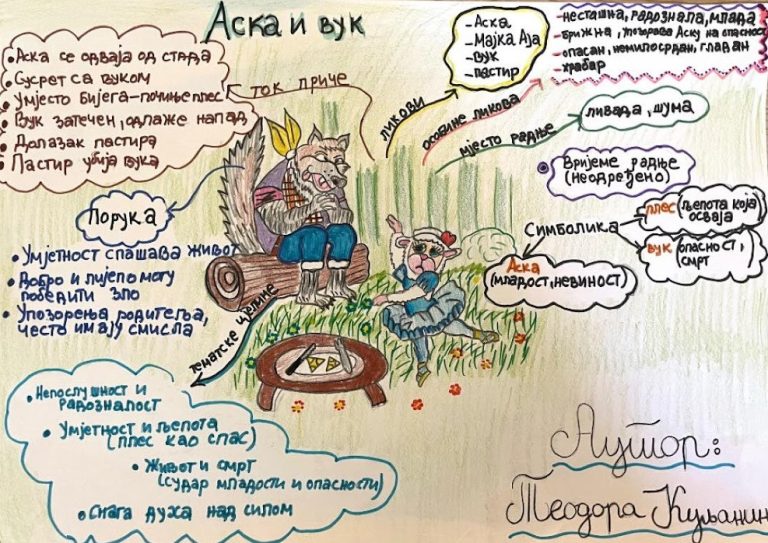 Аска и вук
Аска се одваја од стада
Сусрет са вуком
Умјесто бијега-почиње плес
Вук затечен, одлаже напад
Долазак пастира
Пастир убија вука
ток приче
ликови
Аска
Мајка Аја
вук
пастир
особине ликова
-несташна, радознала, млада
-брижна, упозорава Аску на опасност
-опасан, немилосрдан, гладан
-храбар
мјесто радње
ливада, шума
Вријеме радње
(неодређено)
Симболика
плес (љепота која
осваја
вук (опасност,
смрт
Аска
(младост, невиност)
Порука
Умјетност спашава живот
Добро и лијепо могу
победити зло
Упозорења родитеља,
често имају смисла
тематске цјелине
Непослушност и
радозналост
Умјетност и љепота
(плес као спас)
Живот и смрт
(судар младости и опасности)
Снага духа над силом
Аутор:
Теодора Куљанин